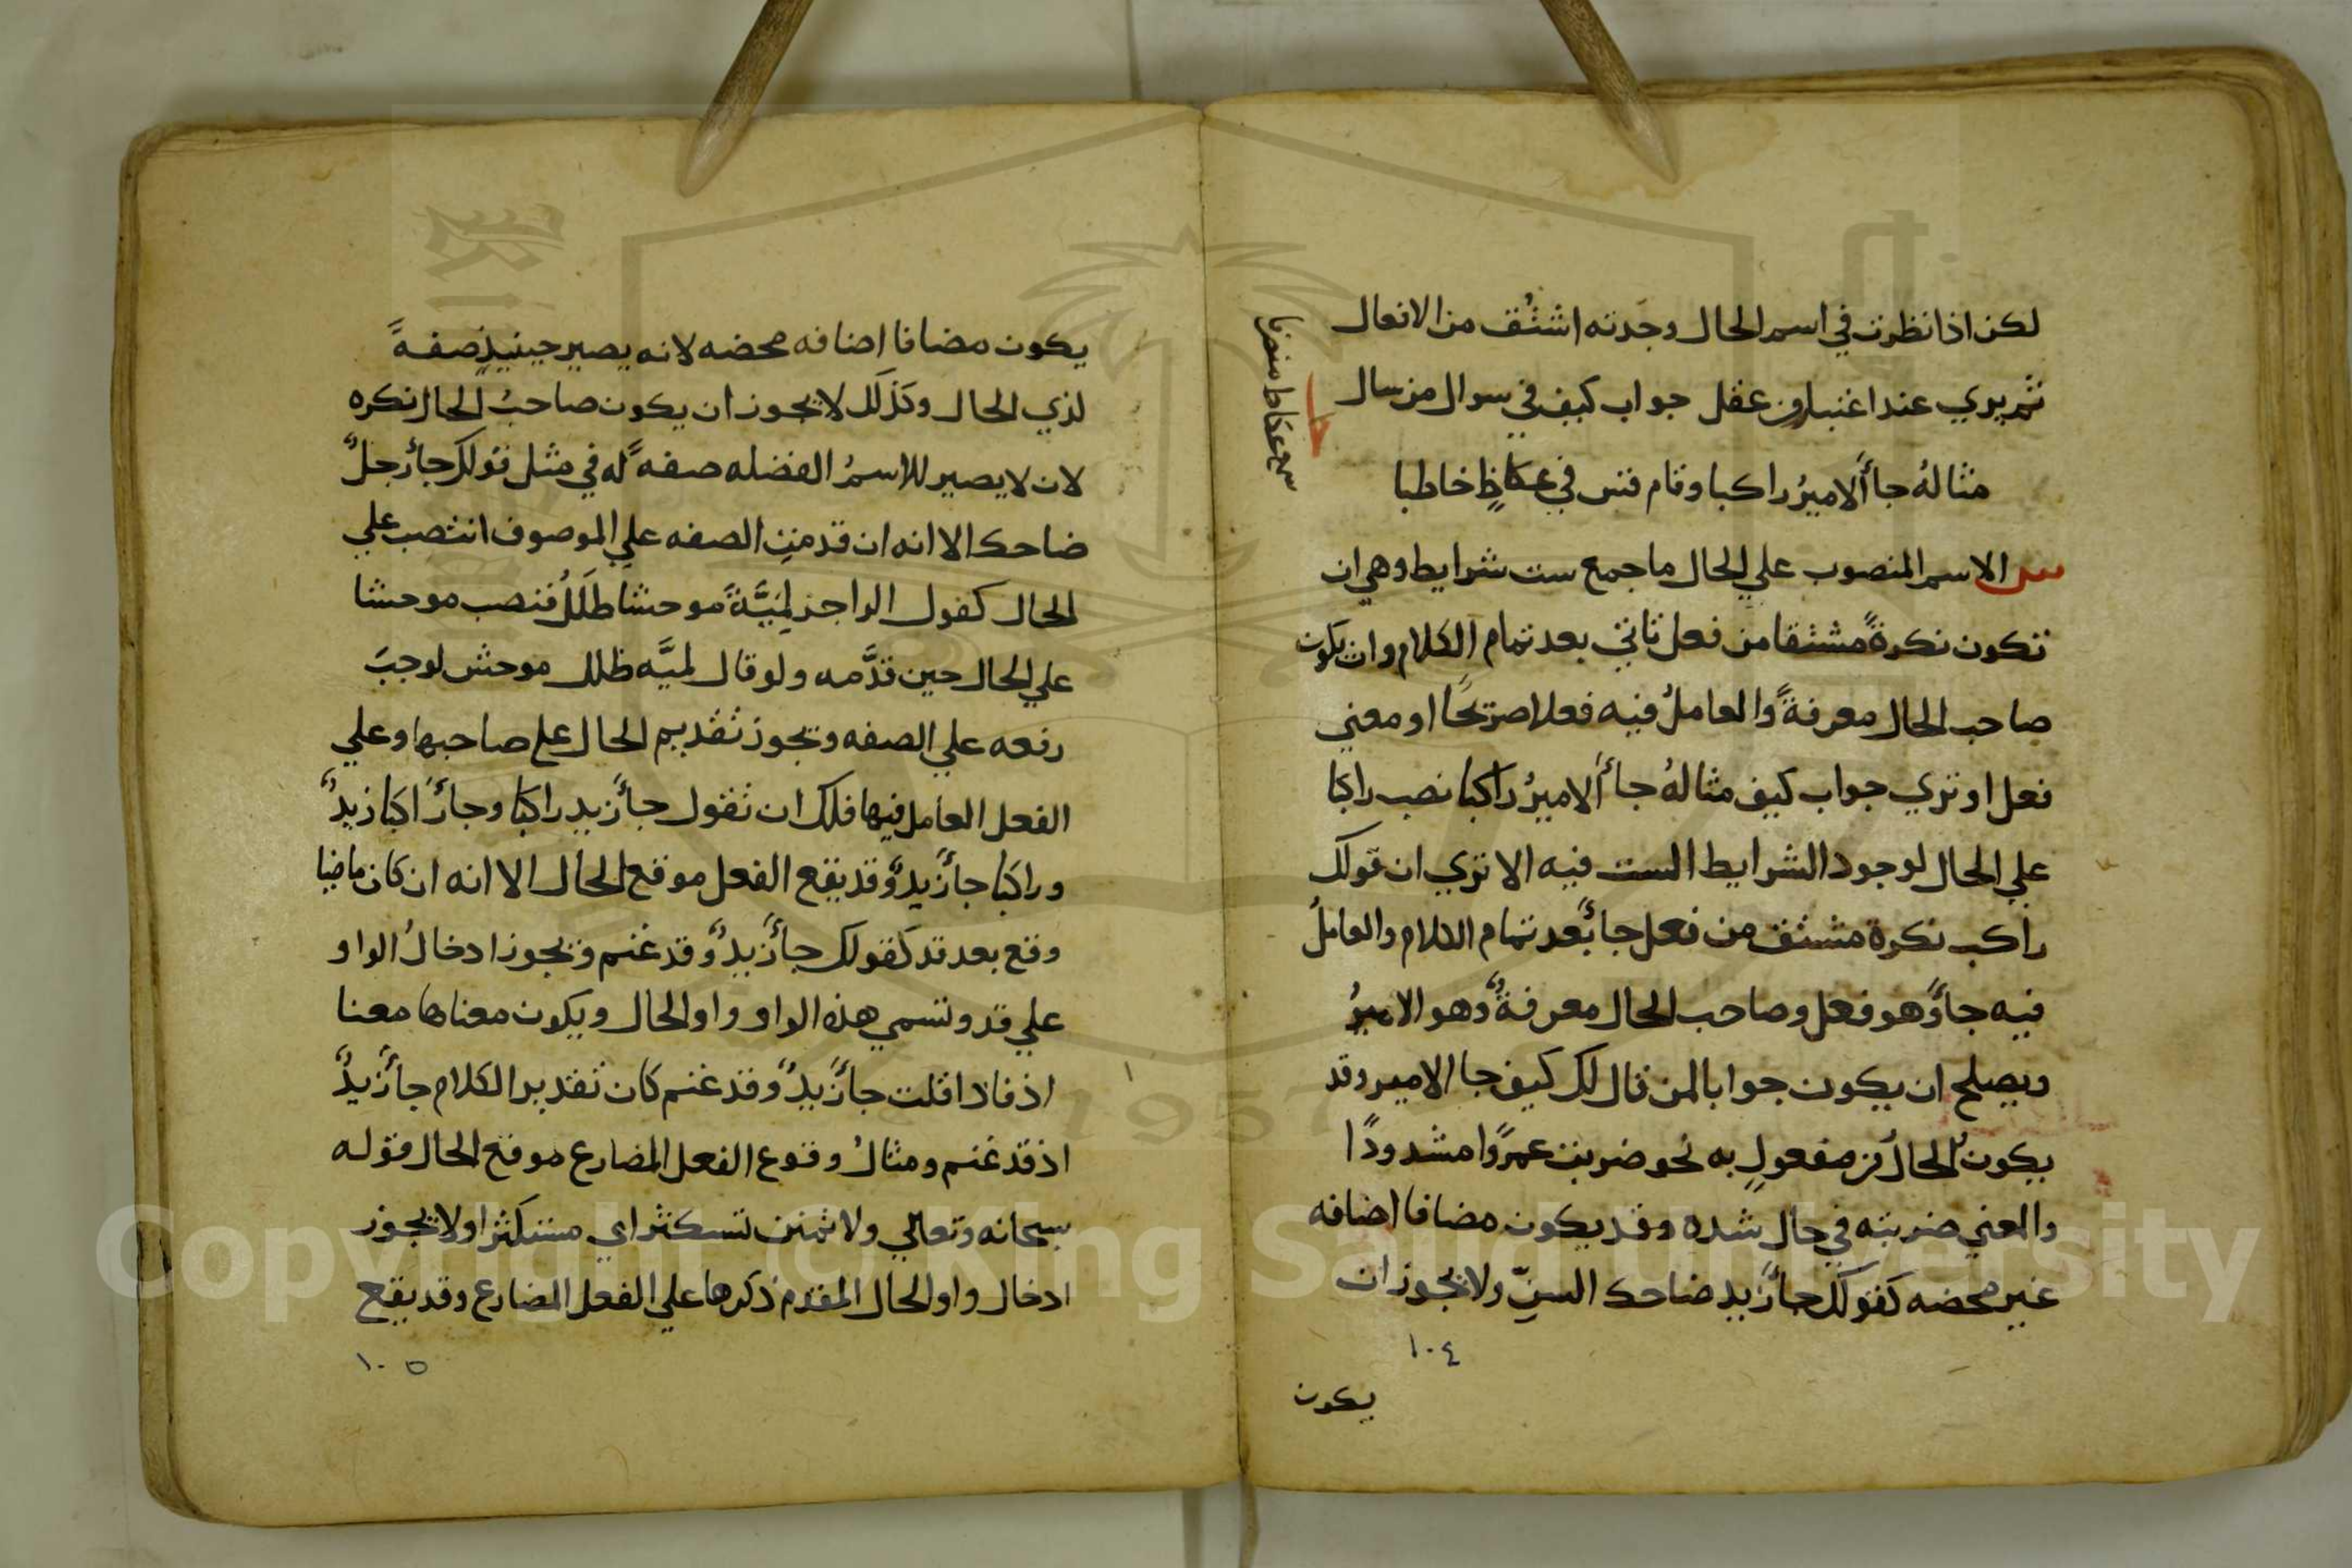 لكن اذا نظرت في اسم الحال وجدته اشتُق من الافعال
ثم يري عند اعتبار من عقل جواب كيف في سوال من سال
مثالهُ جاأ الاميرُ راكبا وقام قس في عكاظٍ خاطبا
الاسم المنصوب علي الحال ما جمع ست شرايط وهي ان
تكون نكرةً مشتقا من فعل تاتي بعد تمام الكلام وان يكون
صاحب الحال معرفةً والعاملُ فيه فعلا صريحًا او معني
فعل او تري جواب كيف مثالهُ جاأ الاميرُ راكبا نصب راكبا
علي الحال لوجود الشرايط الست فيه الا تري ان قولك
راكب نكرة مشتق من فعل جأ بعد تمام الكلام والعاملُ
فيه جأ وهو فعل وصاحب الحال معرفةٌ وهو الاميرُ
ويصلح ان يكون جوابا لمن قال لك كيف جا الامير وقد
يكون الحالُ من مفعولٍ به نحو ضربت عمرًوا مشدودًا
والمعني ضربته في حال شده وقد يكون مضافا اضافه
غير محضه كقولك جأ زيد ضاحك السنِّ ولا يجوز ان
١٠٤
يكون
يكون مضافا اضافه محضه لانه يصير حينيذٍ صفةً
لذي الحال وكذلك لا يجوز ان يكون صاحبُ الحال نكره
لان لا يصير للاسمُ الفضله صفهً له في مثل قولك جأ رجلٌ
ضاحك الا انه ان قدمت الصفه علي الموصوف انتصب علي
الحال كقول الراجز لِمَيَّةً موحشا طَلَلُ فنصب موحشا
علي الحال حين قدَّمه ولو قال لميَّه طلل موحش لوجبَ
رفعه علي الصفه ويجوز تقديم الحال علي صاحبها وعلي
الفعل العامل فيها فلك ان تقول جأ زيد راكبا وجأ راكبا زيدٌ
وراكبا جأ زيدٌ وقد يقع الفعل موقع الحال الا انه ان كان ماضيا
وقع بعد قد كقولك جأ زيدٌ وقد غنم ويجوز ادخالُ الواو
علي قد وتسمي هذه الواو واو الحال ويكون معناها معنا
اذ فاذا قلت جأ زيدٌ وقد غنم كان تقدير الكلام جأ زيدٌ
اذ قد غنم ومثالُ وقوع الفعل المضارع موقع الحال قوله
سبحانه وتعالي ولا تمنن تستكثر اي مستكثرا ولا يجوز
ادخال واو الحال المقدم ذكرها علي الفعل المضارع وقد يقع
١٠٥